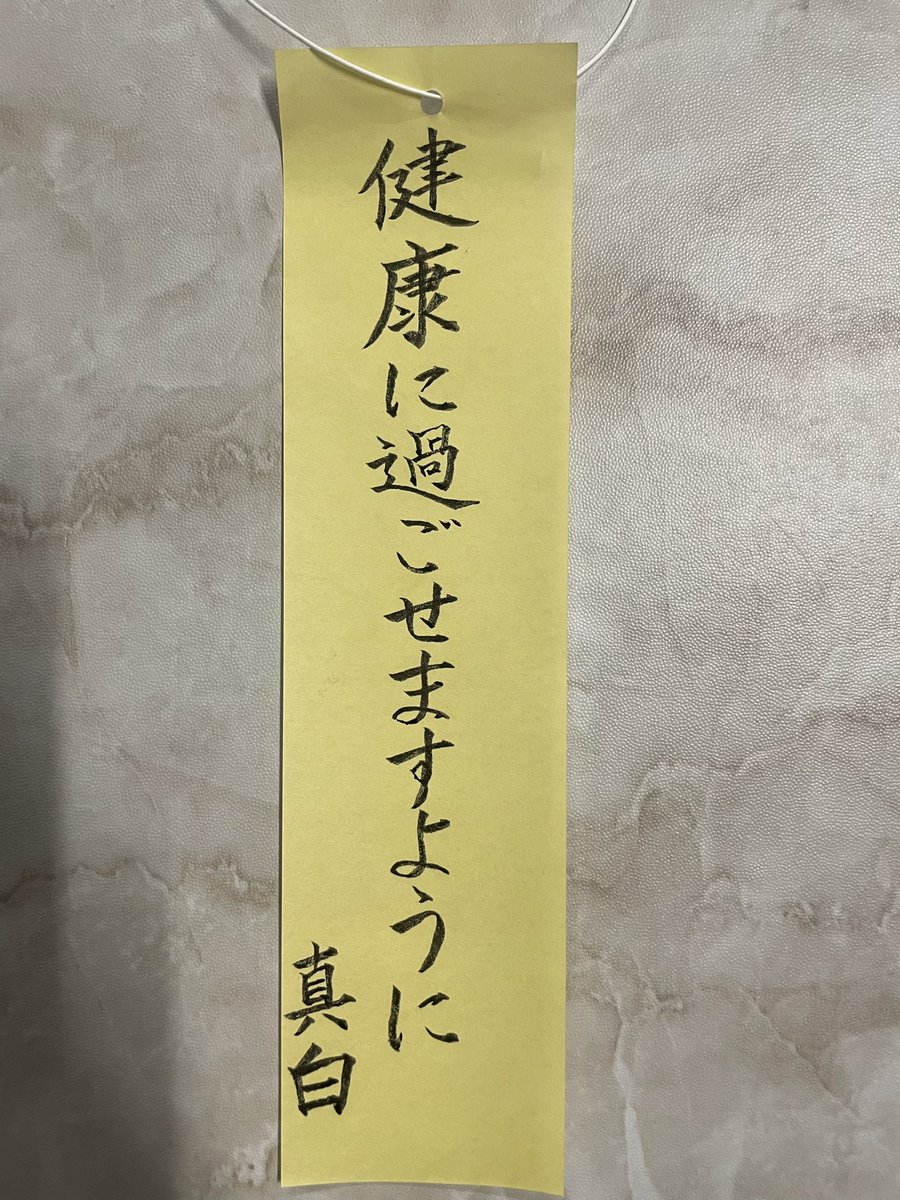 健康に過ごせますように
真白